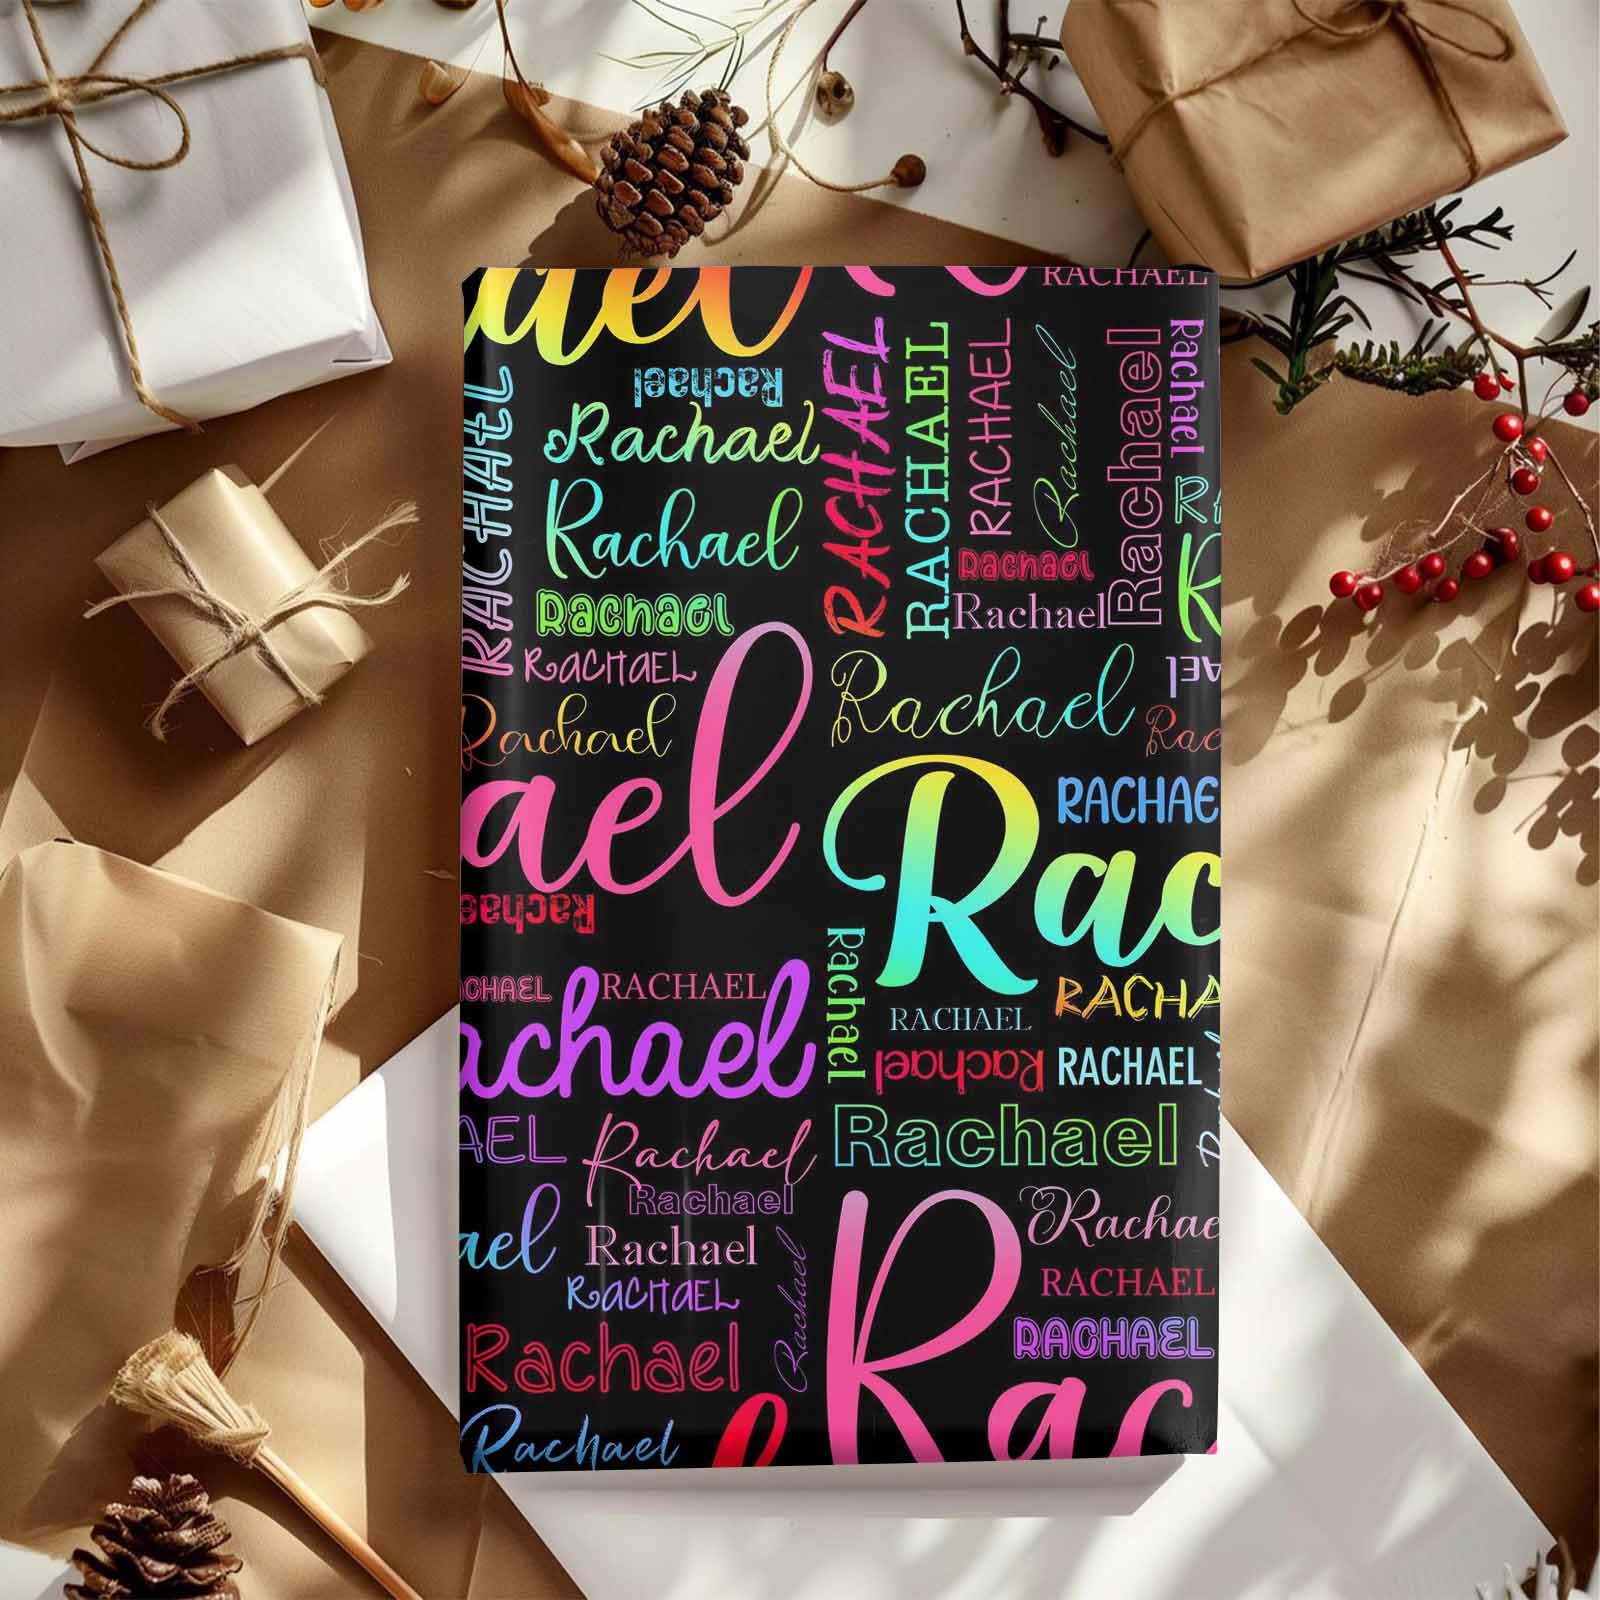 ael
RACHAEL
Rachael
RACHAEL
Rachael
Rachael
Rachael
RACHAEL
Rachael
RACHAEL
RACHAEL
RACHAEL
Rachael
Rachael
Rachael
Rachael
Rachael
Rachael
ael
Rachael
Rac
RACHAE
Rac
Rachae
Rachael
RACHAEL
RACHA
RACHAEL
Rachael
RACHAEL
CHAEL
RACHAEL
achael
Rachael
AEL
Rachael
Rachael
ael
Rachael
RACHAEL
Rachael
Rachae
RACHAEL
RACHAEL
Rachael
Rachael
Rac